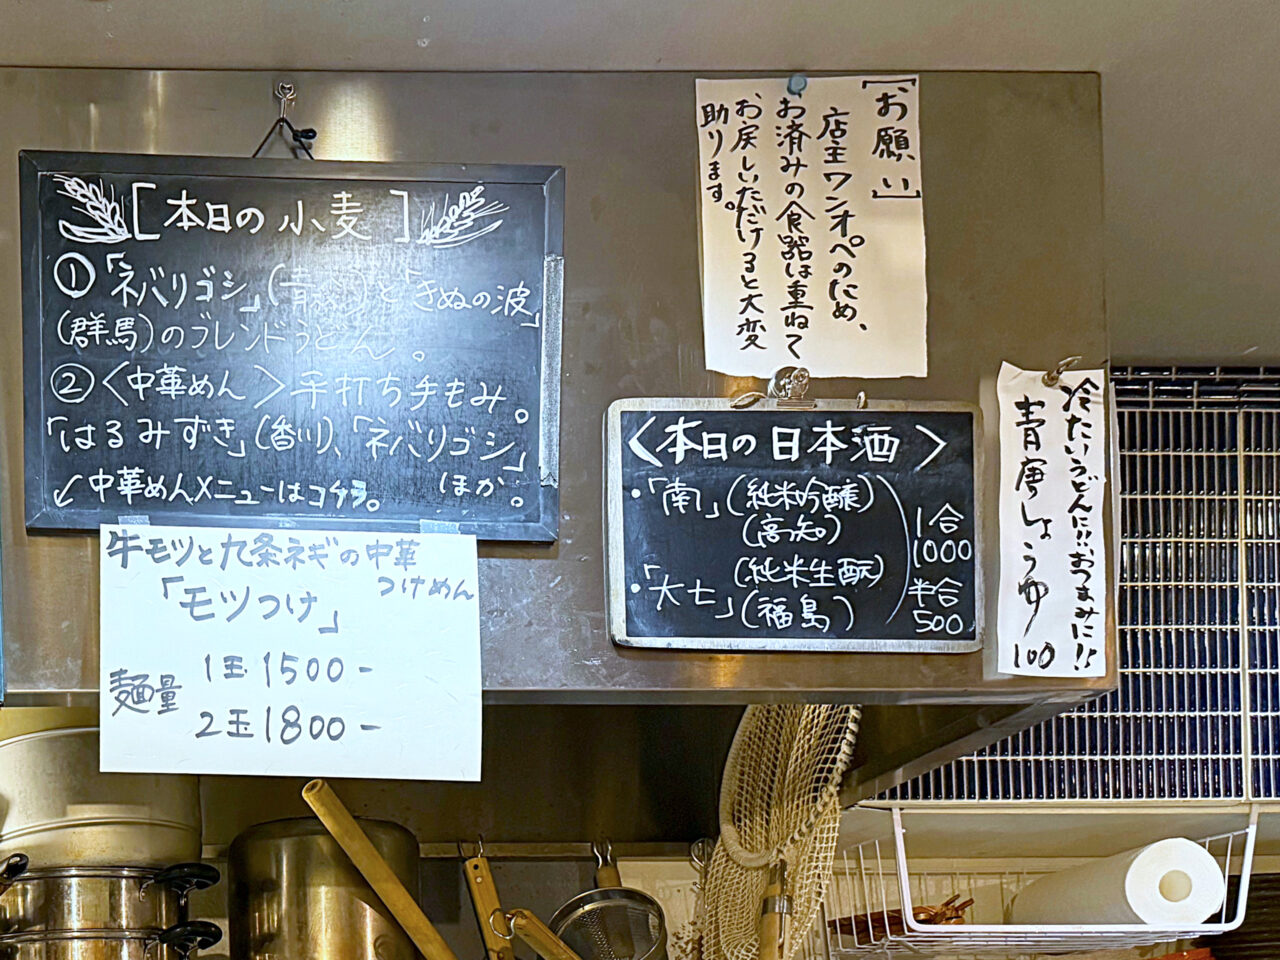 [本日の小麦]
①「ネバリゴシ」(青森)と「きぬの波」
(群馬)のブレンドうどん。
②〈中華めん〉手打ち手もみ。
「はるみずき」(香川)、「ネバリゴシ」
ほか。
↙中華めんメニューはコチラ。
牛モツと九条ネギの中華
つけめん
「モツつけ」
麺量
1玉1500-
2玉1800-
[お願い]
店主ワンオペのため、
お済みの食器は重ねて
お戻しいただけると大変
助ります。
〈本日の日本酒〉
・「南」(純米吟醸)
(高知)
・「大七」(純米生酛)
(福島)
1合
1000
半合
500
冷たいうどんに!!おつまみに!!
青唐しょうゆ
100